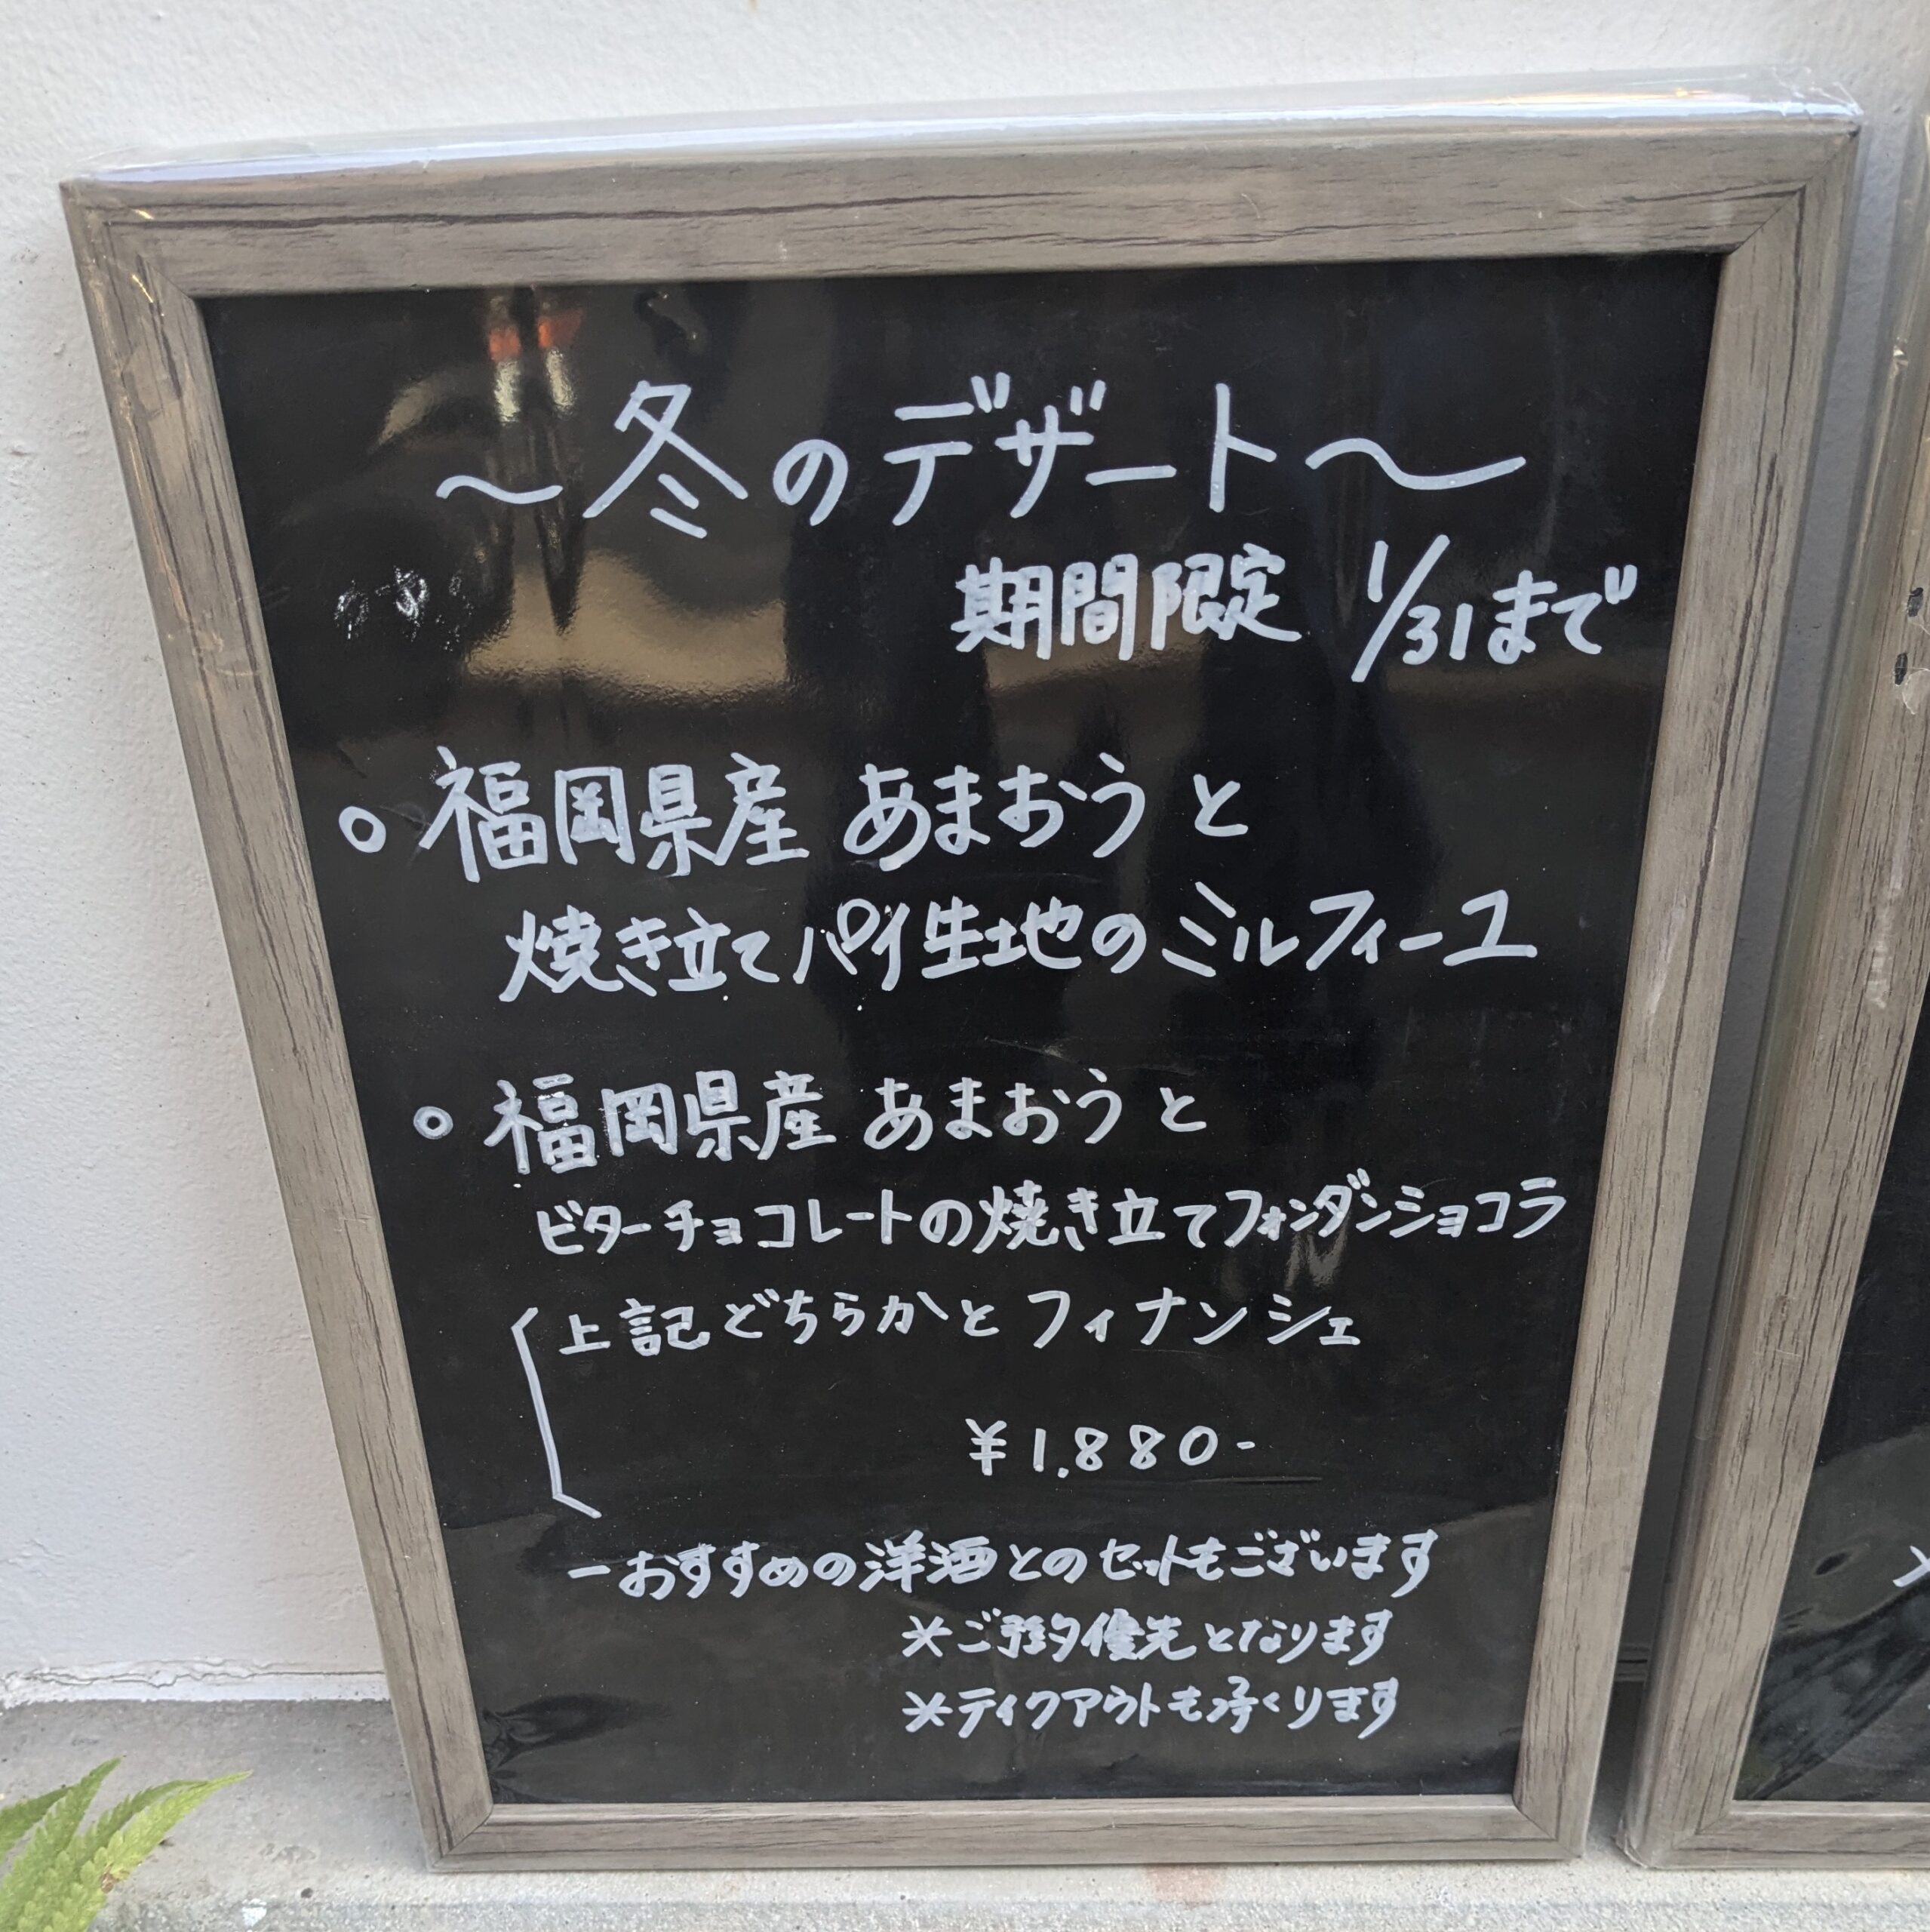 ～冬のデザート～
期間限定 1/31まで
○福岡県産 あまおうと
焼き立てパイ生地のミルフィーユ
○福岡県産 あまおうと
ビターチョコレートの焼き立てフォンダンショコラ
上記どちらかと フィナンシェ
¥1.880-
-おすすめの洋酒とのセットもございます
※ご予約優先となります
※テイクアウトも承ります